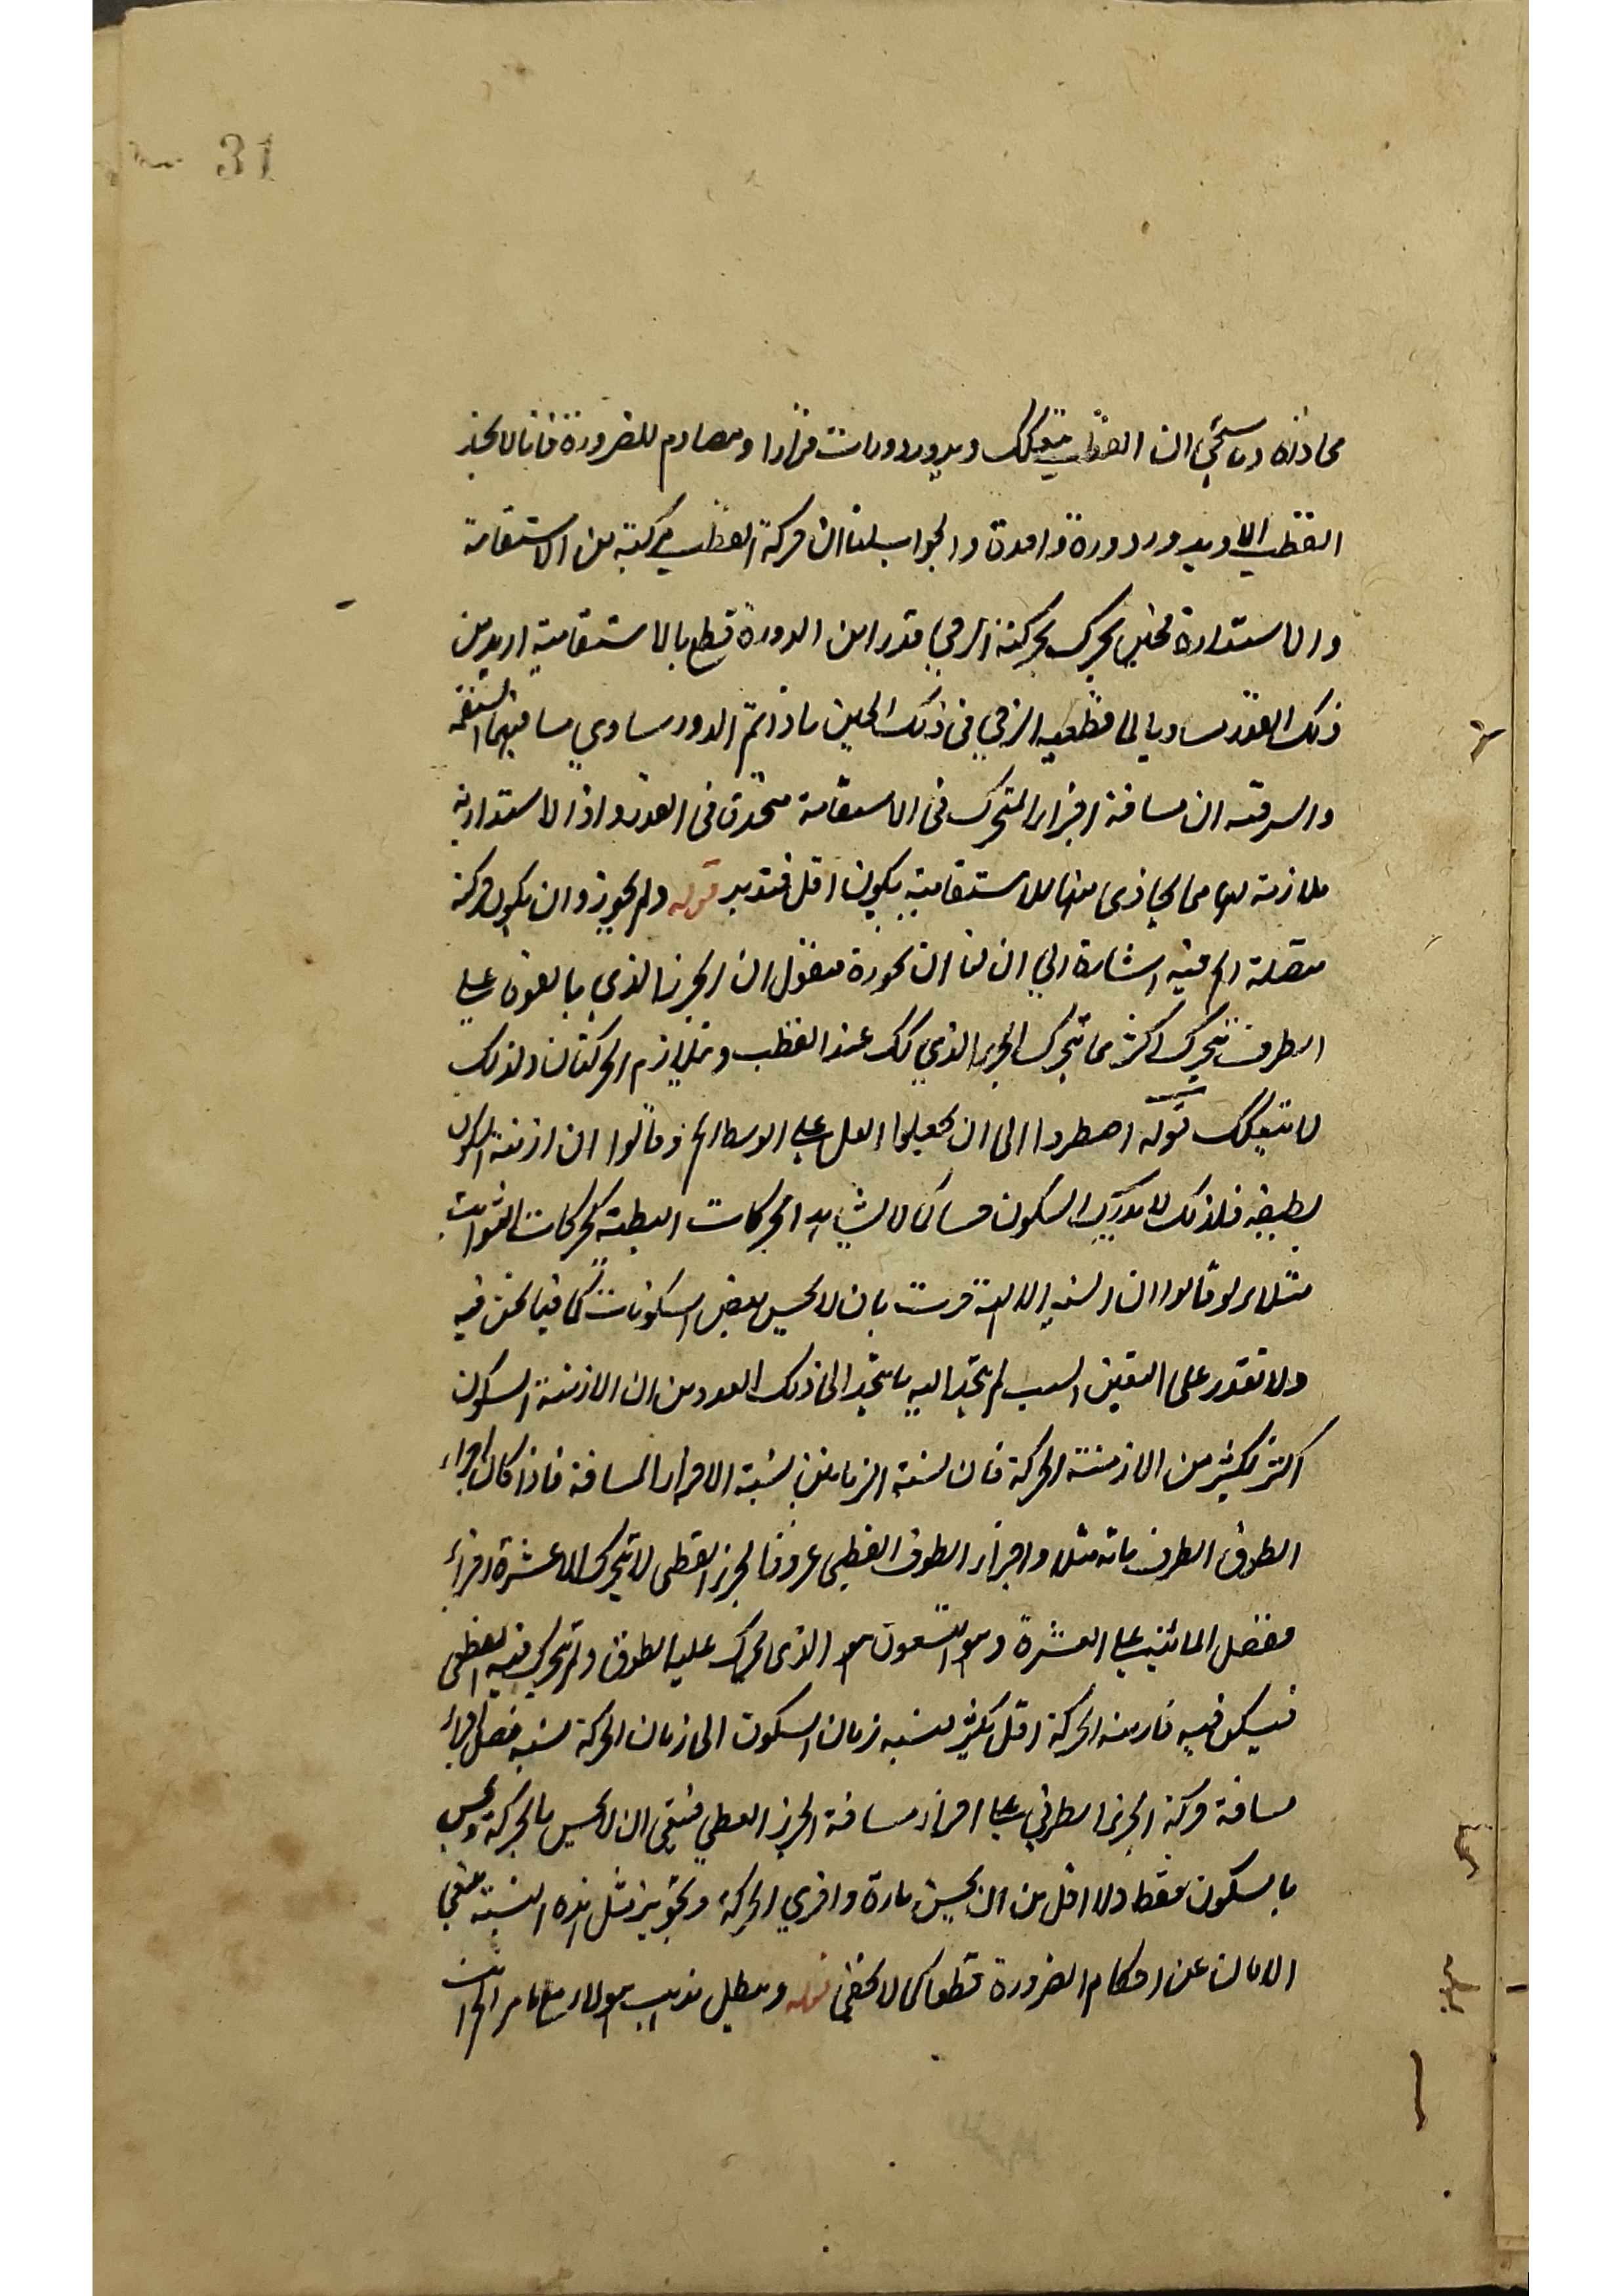 31
محاذاته وما يتبين ان القطب يتفكك ويدور دورات مرارا ومصادم للضرورة فانا لا نجد
القطب الا ويدور دورة واحدة والجواب بان حركة القطب مركبة من الاستقامة
والاستدارة فحين يتحرك بحركته الرحى قدرا من الدورة قطع بالاستقامة ازيد من
ذلك القدر مساويا لما قطعه الرحى فى ذلك الحين فاذا تم الدور ساوي مسافتهما
والسر فيه ان مسافة اجزاء المتحرك فى الاستقامة متحدة فى القدر واذا الاستدارية
ملازمة لها فما يحاذى منها الاستقامية يكون اقل فتدبر قوله ولم يجوزوا ان يكون حركة
متصلة الخ فيه اشارة الى ان لنا ان نجوزه فنقول ان الجزء الذي بالقرب على
الطرف يتحرك اكثر مما يتحرك الجزء الذي كك عند القطب وتلازم الحركتان ولذلك
لا يتفكك قوله اضطروا الى ان يجعلوا العلة على الوسط الخ وقالوا ان ازمنة السكون
لطيفة فلذلك لا يدرك السكون حسا كما لا يشاهد الحركات البطية كحركات الثوابت
مثلا ولو قالوا ان السنة الالهية جرت بان لا يحس ببعض السكونات كما فيما نحن فيه
ولا نقدر على تعيين السبب لم يتجه اليه ما يتجه الى ذلك العدد من ان الازمنة السكون
اكثر بكثير من الازمنة الحركة فان نسبة الزمانين نسبة الاجزاء المسافة فاذا كان اجزاء
الطوق الطرف مائة مثلا واجزاء الطوق القطبى عشرة فالجزء القطبى لا يتحرك الا عشرة اجزاء
ففضل المائة على العشرة وهو التسعون هو الذى تحرك عليه الطوق ولم يتحرك فيه القطبى
فيسكن فيه فازمنة الحركة اقل بكثير نسبة زمان السكون الى زمان الحركة نسبة فضل اجزاء
مسافة حركة الجزء الطرفي على اجزاء مسافة الجزء القطبي فينبغى ان لا يحس بالحركة ويحس
بالسكون فقط ولا اقل من ان يحس تارة واخرى الحركة وتجويز مثل هذه النسبة ينفى
الامان عن احكام الضرورة قطعا كما لا يخفى قوله ويبطل مذهب هؤلاء مع ما مر الخ